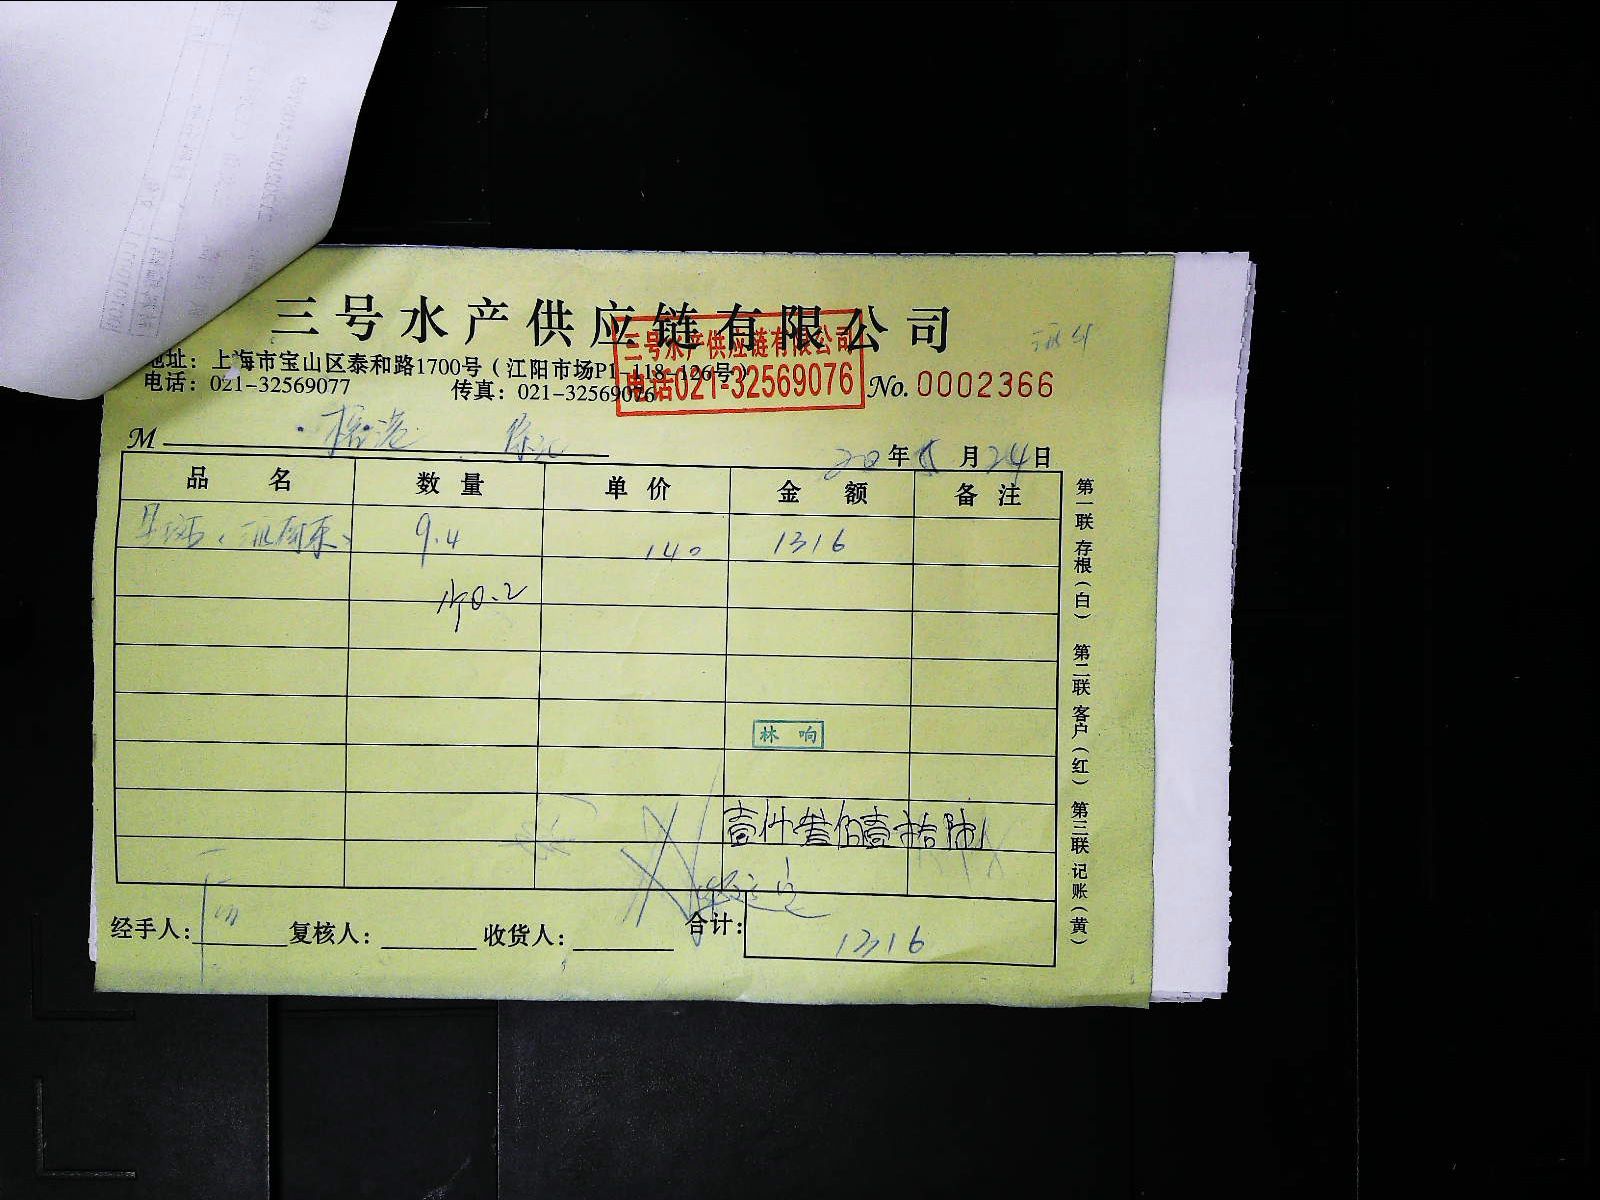 三号水产供应链有限公司
地址：上海市宝山区泰和路1700号（江阳市场P1-118-126号）
电话：021-32569077 传真：021-32569076
三号水产供应链有限公司
电话021-32569076
No. 0002366
M
20年 月24日
品名 数量 单价 金额 备注
9.4 140 1316
林响
壹仟叁佰壹拾陆
经手人： 复核人： 收货人： 合计：1316
第一联存根（白） 第二联客户（红） 第三联记账（黄）